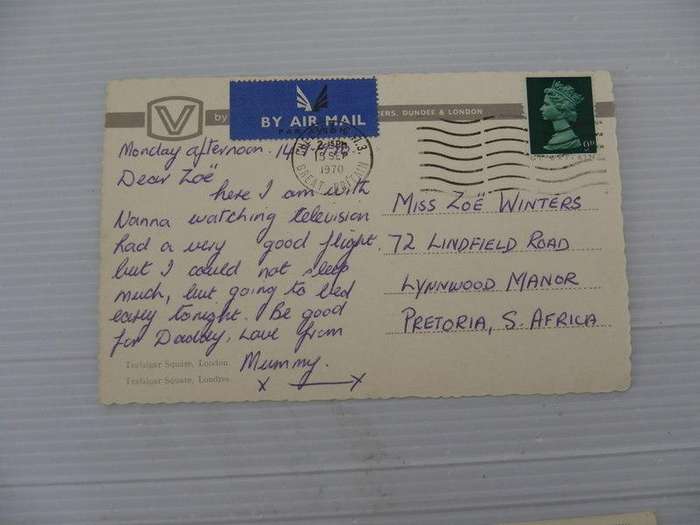 by
BY AIR MAIL
PAR AVION
ERS, DUNDEE & LONDON
2.15PM
15 SEP
1970
GREAT BRITAIN
9D
Monday afternoon. 14
Dear Zoë
here I am with
Nanna watching television
had a very good flight
but I could not sleep
much, but going to bed
early tonight. Be good
for Daddy, Love from
Mummy.
x x
Trafalgar Square, London.
Trafalgar Square, Londres.
MISS ZOË WINTERS
72 LINDFIELD ROAD
LYNNWOOD MANOR
PRETORIA, S. AFRICA